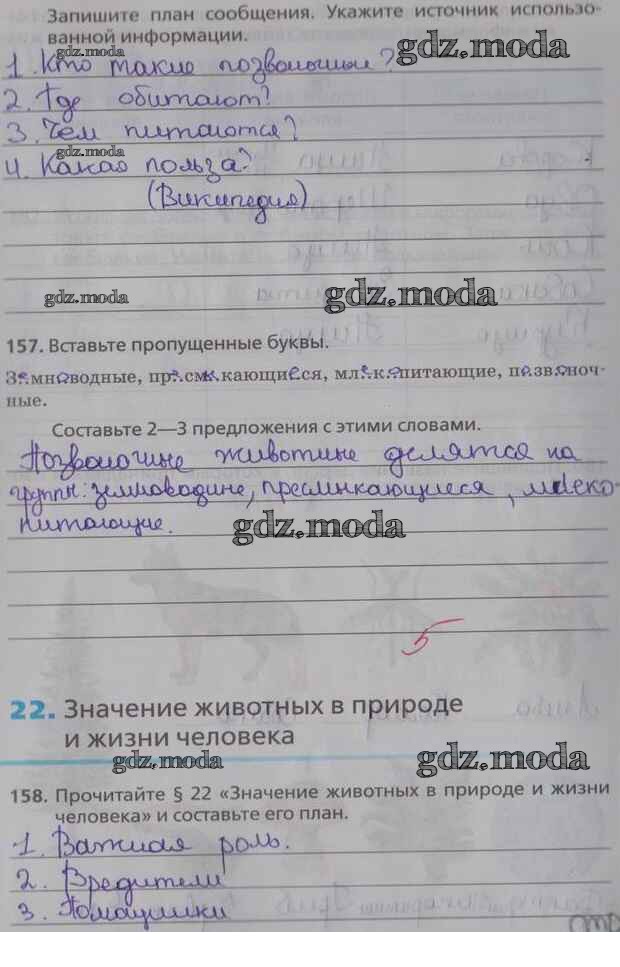 Запишите план сообщения. Укажите источник использо-
ванной информации.
gdz.moda
gdz.moda
1. Кто такие позвоночные?
2. Где обитают?
3. Чем питаются?
gdz.moda
4. Какая польза?
(Википедия)
gdz.moda
gdz.moda
157. Вставьте пропущенные буквы.
Земноводные, пресмыкающиеся, млекопитающие, позвоноч-
ные.
Составьте 2—3 предложения с этими словами.
Позвоночные животные делятся на
группы: земноводные, пресмыкающиеся, млеко-
питающие.
gdz.moda
5
22. Значение животных в природе
и жизни человека
gdz.moda
gdz.moda
158. Прочитайте § 22 «Значение животных в природе и жизни
человека» и составьте его план.
1. Важная роль.
2. Вредители
3. Помощники